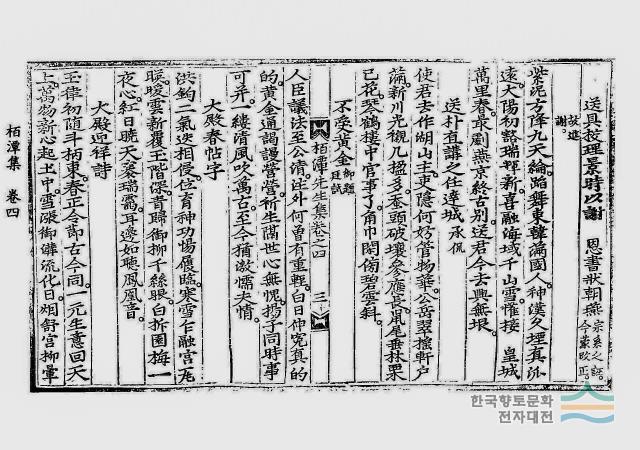 送具校理景時以謝 恩書狀朝燕 宗系之誣今蒙改正
故進謝
紫泥方降九天綸蹈舞東韓滿國人神漢久埋真派
遠大陽初豁瑞暉新喜融海域千山雪惟接 皇城
萬里春最別燕京終古別送君今去興無垠
送朴直講之任達城 承侃
使君去作湖山主吏隱何妨管物華公岳翠 軒戶
滿新川光襯几楹多蚕頭破壤參應長鼠尾垂林果
已花琴鶴樓中官事了角巾閑倚碧雲斜
不受黃金 御題廷試
栢潭先生集卷之四 三
人臣議法至公清注外何曾有重輕白日伸寃真的
的黃金通謁謾營營祈生 世心無愧揚子同時事
可幷一縷清風吹萬古至今猶激懦夫情
大殿春帖字
洪鈞二氣迭相侵位育神功暢履臨寒雪乍融宮瓦
暖暖雲新覆玉階深青歸御柳千絲眼白折園梅一
夜心紅日曉天蒙瑞靄耳邊如聽鳳凰音
大殿延祥詩
玉律初隨斗柄東春正令節古今同一元生意回天
上萬物新心起土中雪滌御溝流化日烟舒宮柳暈
栢潭集 卷四
한국향토문화
전자대전